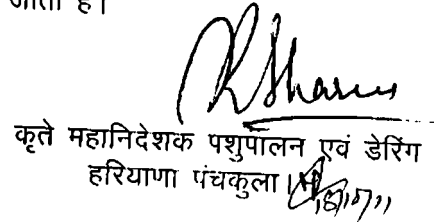 जाता है।
कृते महानिदेशक पशुपालन एवं डेरिंग
हरियाणा पंचकुला।